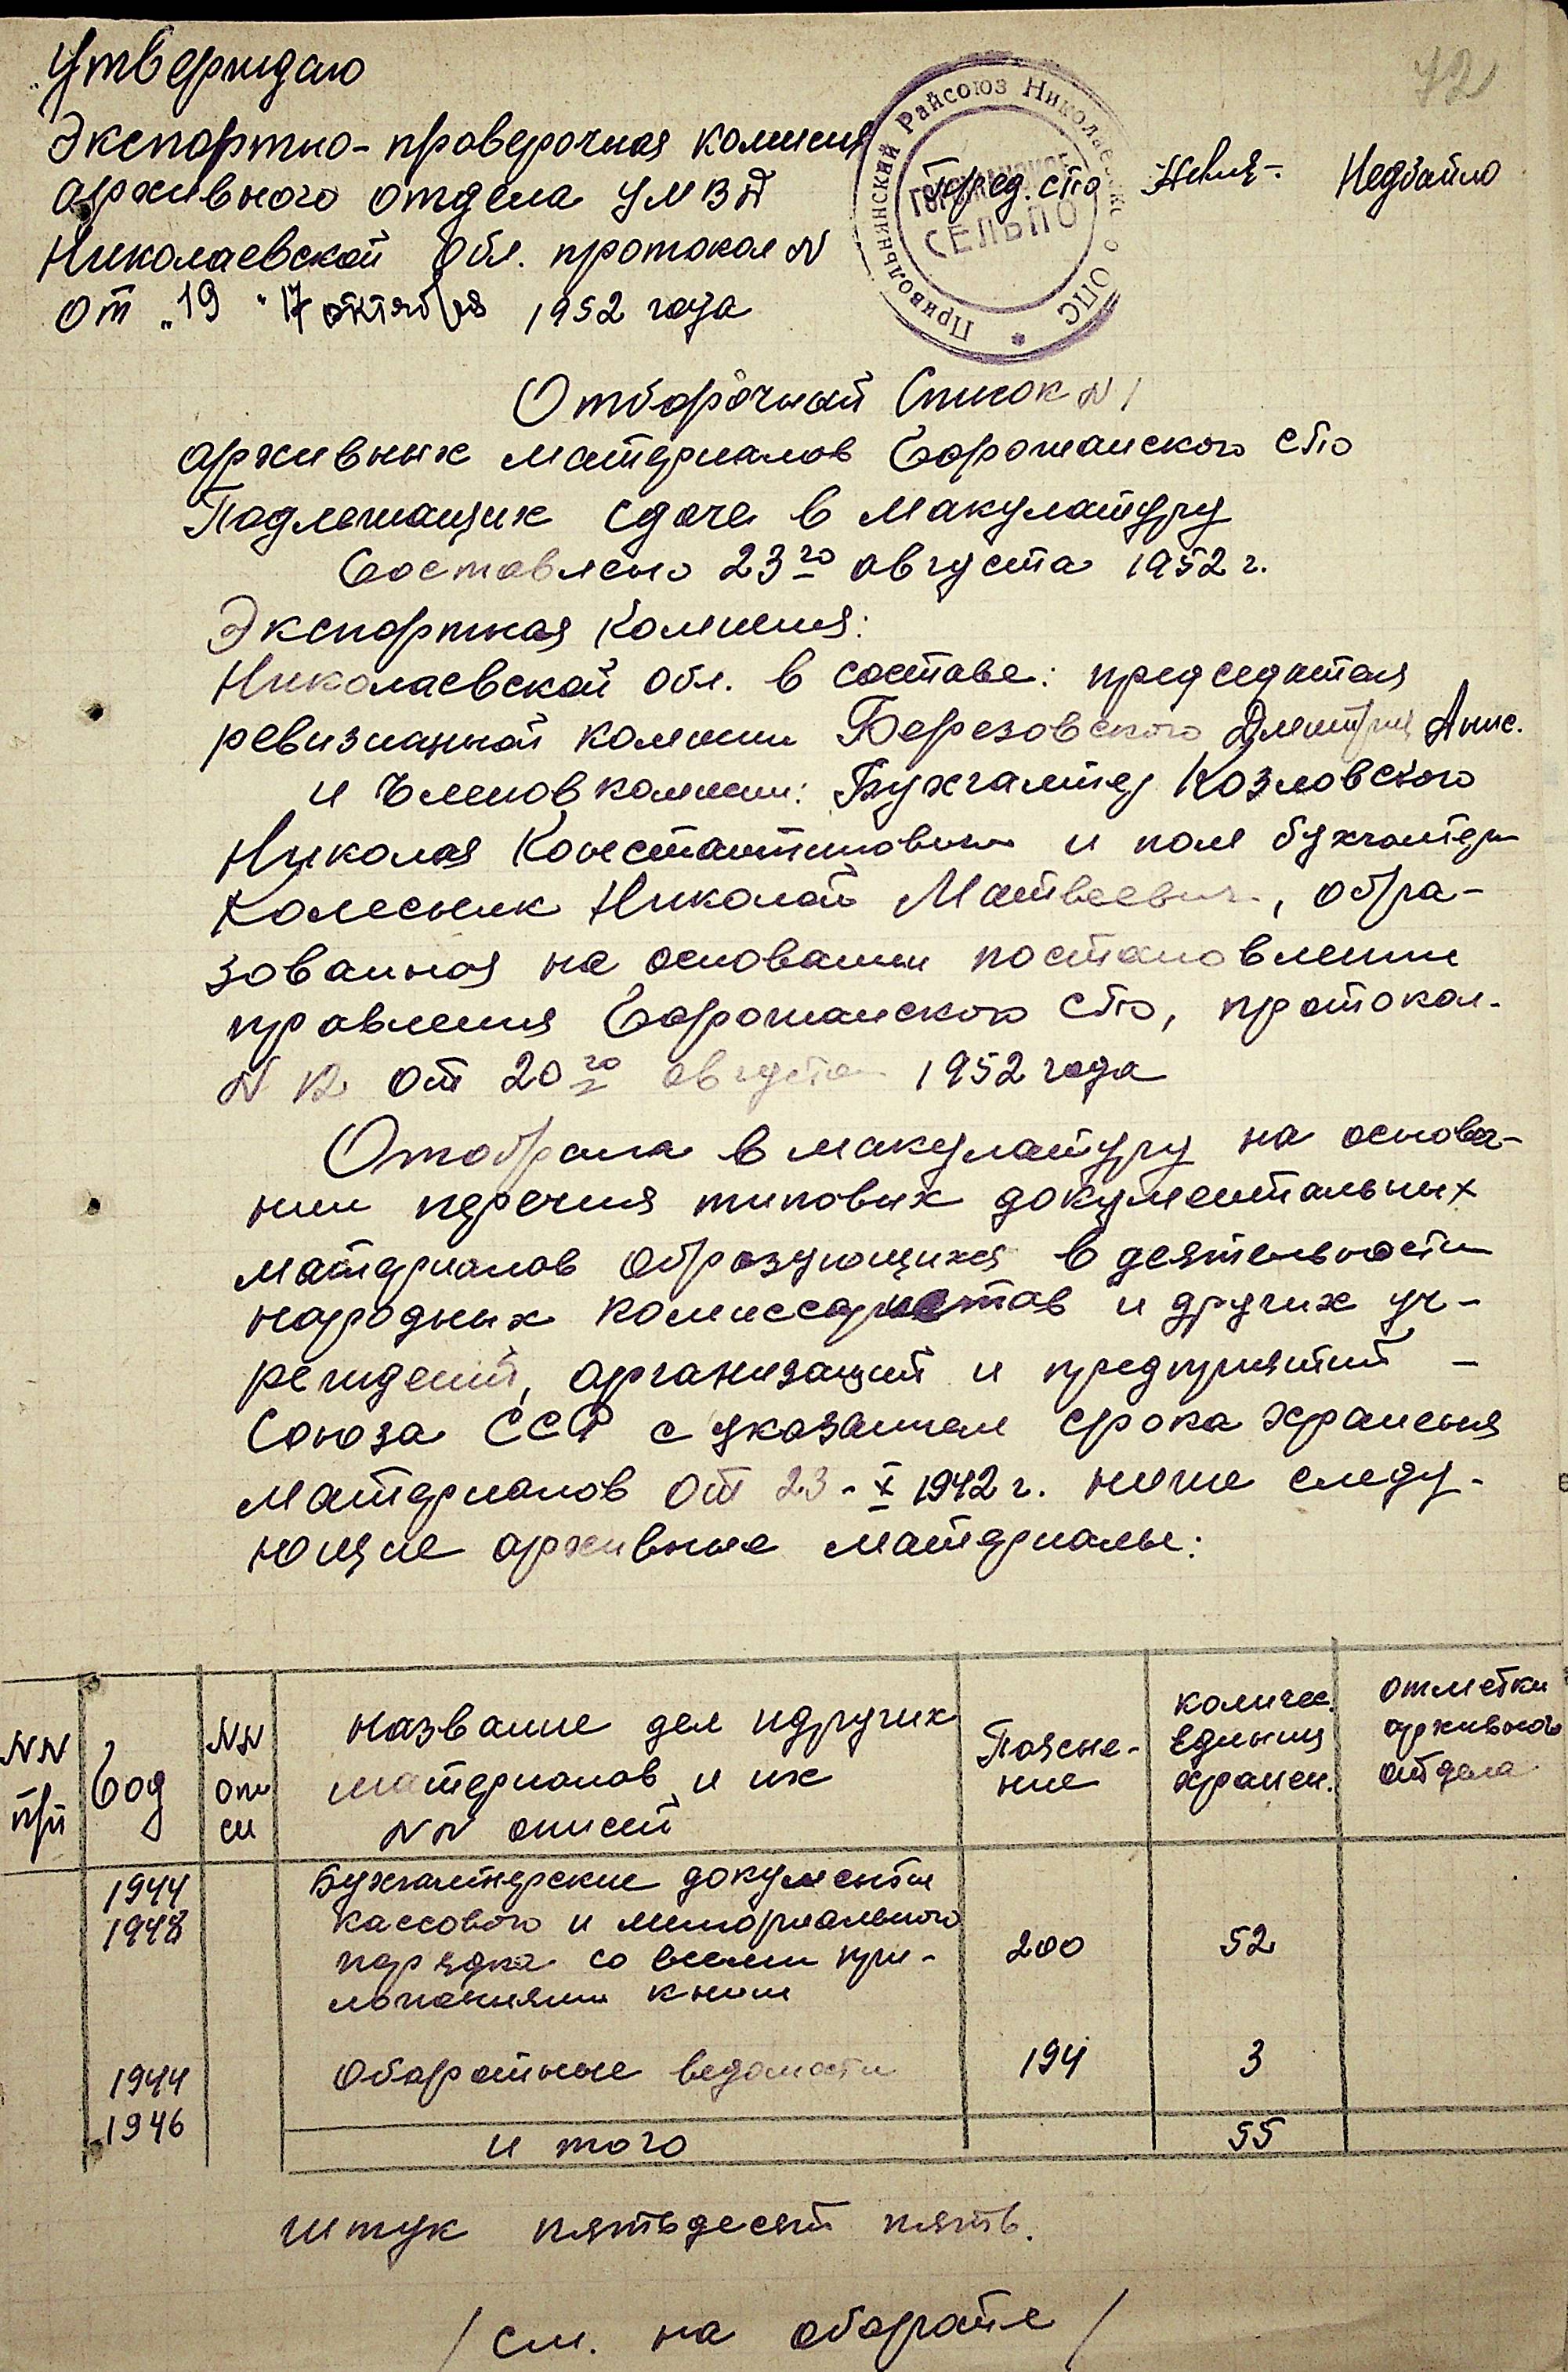 72
Утверждаю
Экспортно-проверочная комисия
архивного отдела УМВД
Николаевской обл. протокол N
от "19" 17 октября 1952 года
Привольнянский Райсоюз Николаевск о ОПС *
СЕЛЬПО
Пред. СПо Недбайло
Отборочный Список N 1
архивных материалов СПо
Подлежащих сдаче в макулатуру
Составлено 23го августа 1952 г.
Экспортная Комисия:
Николаевской обл. в составе: председателя
ревизианной комисии Березовского Дмитрия Анис.
и Членов комисии: Бухгалтер Козловского
Николая Константиновича и пом бухгалтера
Колесник Николай Матвеевич, обра-
зованная на основании постановлении
правления СПо, протокол-
N 12 от 20го августа 1952 года
Отобрала в макулатуру на основа-
нии перечня типовых документальных
материалов образующихся в деятельности
народных комиссариатов и других уч-
реждений, организаций и предприятий -
Союза ССР с указанием срока хранения
материалов от 23-X 1942 г. ниже следу-
ющие архивные материалы:
NN п/п | Год | NN описи | Название дел и других материалов и их NN описей | Поясне-ние | количес. единиц хранен. | отметки архивного отдела
1944 1948 | Бухгалтерские документы кассового и мимориального порядка со всеми при-ложениями к ним | 200 | 52
1944 1946 | Обаротные ведомости | 194 | 3
и того | 55
штук пятьдесят пять.
/ см. на обароте /